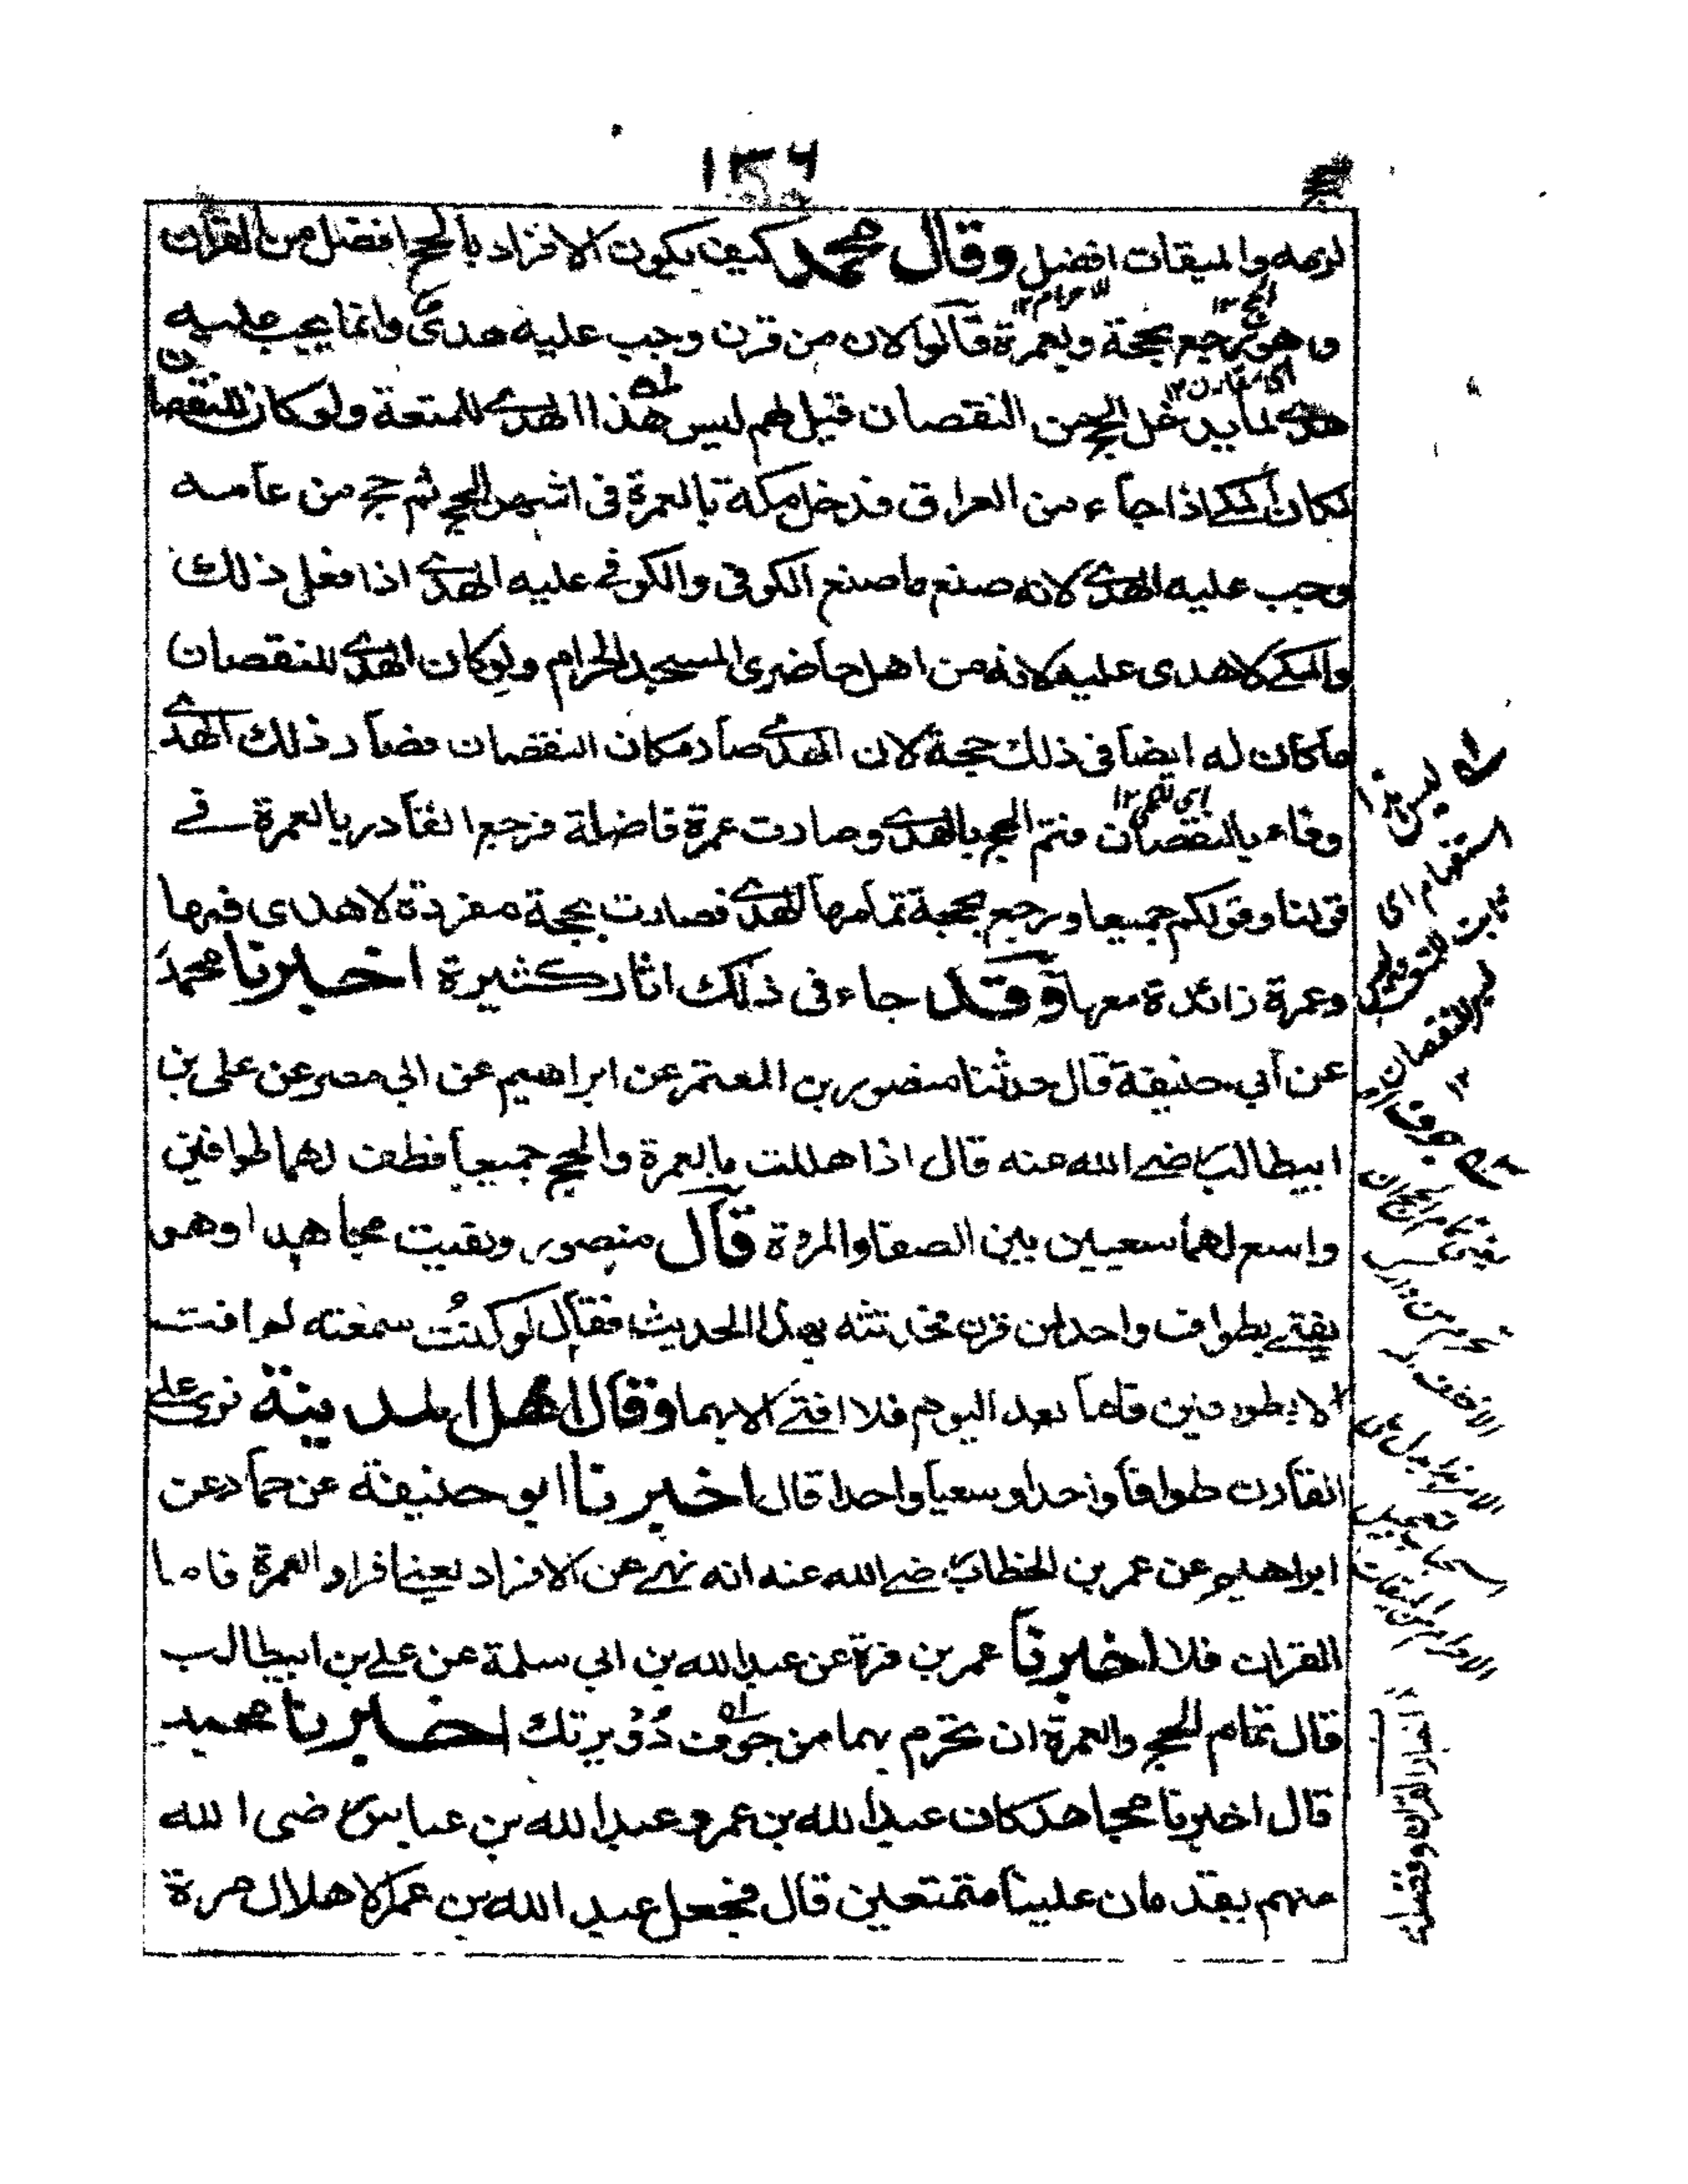 ١٣٦
لزمه والميقات افضل وقال محمد كيف يكون الافراد بالحج افضل من القران
وهو يرجع بحجة وبعمرة قالوا لان من قرن وجب عليه هدى وانما يجب عليه
هدى لما يدخل الحج من النقصان قيل لهم ليس هذا الهدى للمتعة ولو كان للنقصان
لكان المكى اذا جاء من العراق فدخل مكة بالعمرة فى اشهر الحج ثم حج من عامه
وجب عليه الهدى لانه صنع ما صنع الكوفى والكوفے عليه الهدى اذا فعل ذلك
والمكے لا هدى عليه لانه من اهل حاضرى المسجد الحرام ولو كان الهدى للنقصان
ما كان له ايضا فى ذلك حجة لان الهدى صار مكان النقصان فصار ذلك الهدى
وفاء بالنقصان فتم الحج بالهدى وصارت عمرة فاضلة فرجع القادر بالعمرة فے
قولنا وقولكم جميعا ورجع بحجة تمامها الهدى فصارت بحجة مفردة لا هدى فيها
وعمرة زائدة معها وقد جاء فى ذلك اثار كثيرة اخبرنا محمد
عن أبي حنيفة قال حدثنا منصور بن المعتمر عن ابراهيم عن ابي مصر عن على بن
ابيطالب رضے الله عنه قال اذا هللت بالعمرة والحج جميعا فطف لهما طوافين
واسع لهما سعيين بين الصفا والمروة قال منصور ولقيت مجاهدا وهو
يفتے بطواف واحد لمن قرن فحدثته بهذا الحديث فقال لو كنتُ سمعته لم افت
الا بطوافين فاما بعد اليوم فلا افتے الا بهما وقال اهل المدينة نرى على
القارن طوافا واحدا وسعيا واحدا قال اخبرنا ابو حنيفة عن حماد عن
ابراهيم عن عمر بن الخطاب رضے الله عنه انه نهے عن الافراد يعنے افراد العمرة فاما
القران فلا اخبرنا عمر بن مرة عن عبد الله بن ابي سلمة عن علے بن ابيطالب
قال تمام الحج والعمرة ان تحرم بهما من جوف دُوَيرتك اخبرنا محمد
قال اخبرنا مجاهد كان عبد الله بن عمر وعبد الله بن عباس رضى الله
منهم يقدمان علينا متمتعين قال فجعل عبد الله بن عمر الاهلال مرة
اى ليس هذا
استفهام اى
ثابت
للنقصان
١٢
اخبار القران وفضله